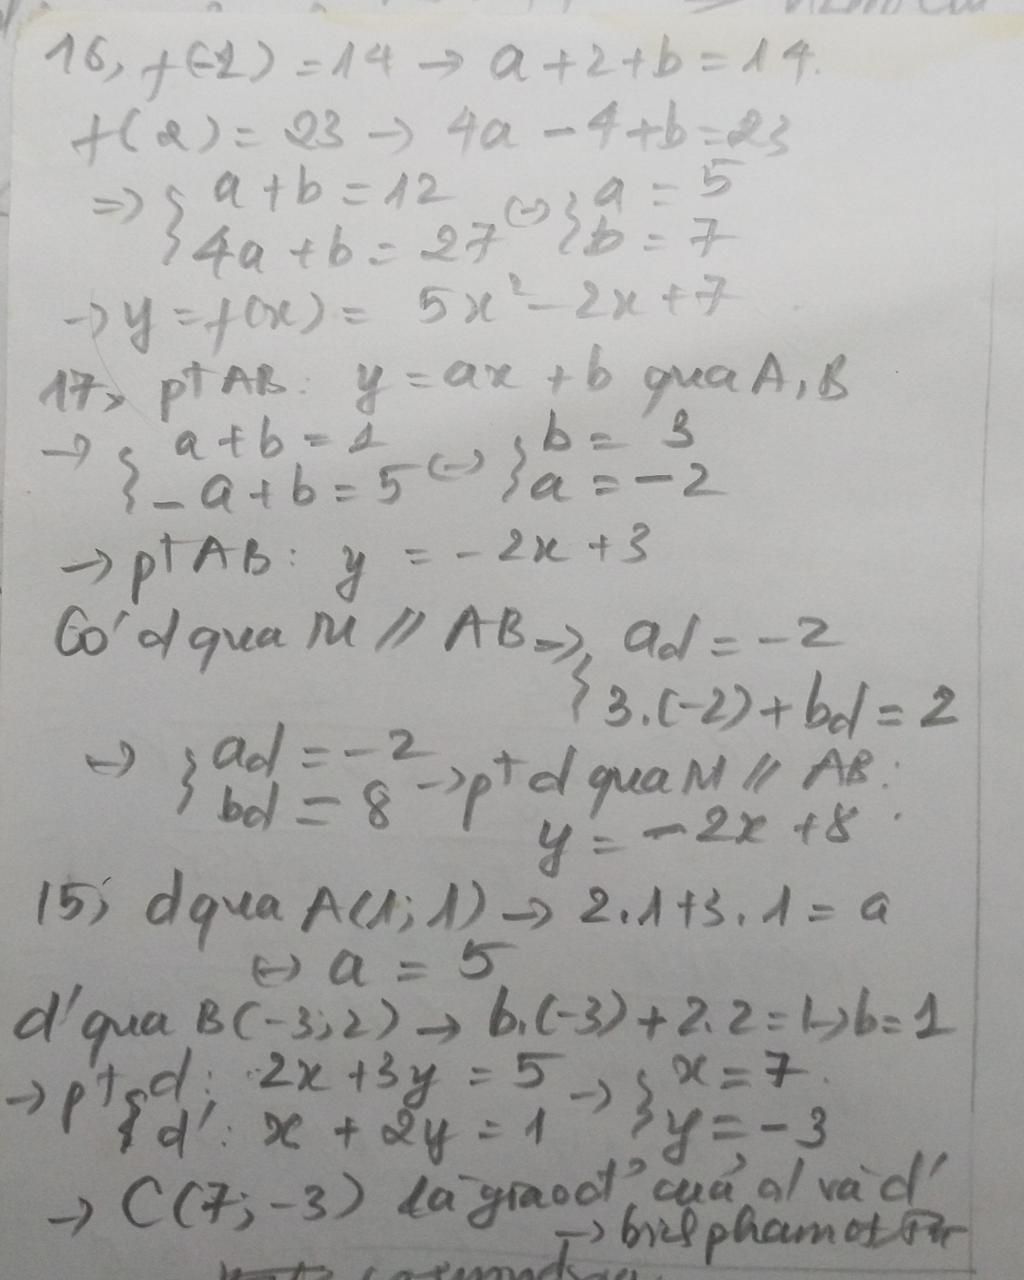 16, f(-1) = 14 → a + 2 + b = 14.
f(2) = 23 → 4a - 4 + b = 23
=> { a + b = 12 (-) { a = 5
{ 4a + b = 27 { b = 7
→ y = f(x) = 5x² - 2x + 7
17, pt AB: y = ax + b qua A, B
→ { a + b = 1 (-) { b = 3
{ -a + b = 5 { a = -2
→ pt AB: y = -2x + 3
Có d qua M // AB → { ad = -2
{ 3.(-2) + bd = 2
→ { ad = -2
{ bd = 8 → pt d qua M // AB:
y = -2x + 8
15, d qua A(1; 1) → 2.1 + 3.1 = a
(-) a = 5
d' qua B(-3; 2) → b.(-3) + 2.2 = 1 → b = 1
→ pt { d: 2x + 3y = 5 → { x = 7
{ d': x + 2y = 1 { y = -3
→ C(7; -3) là giao đ' của d và d'